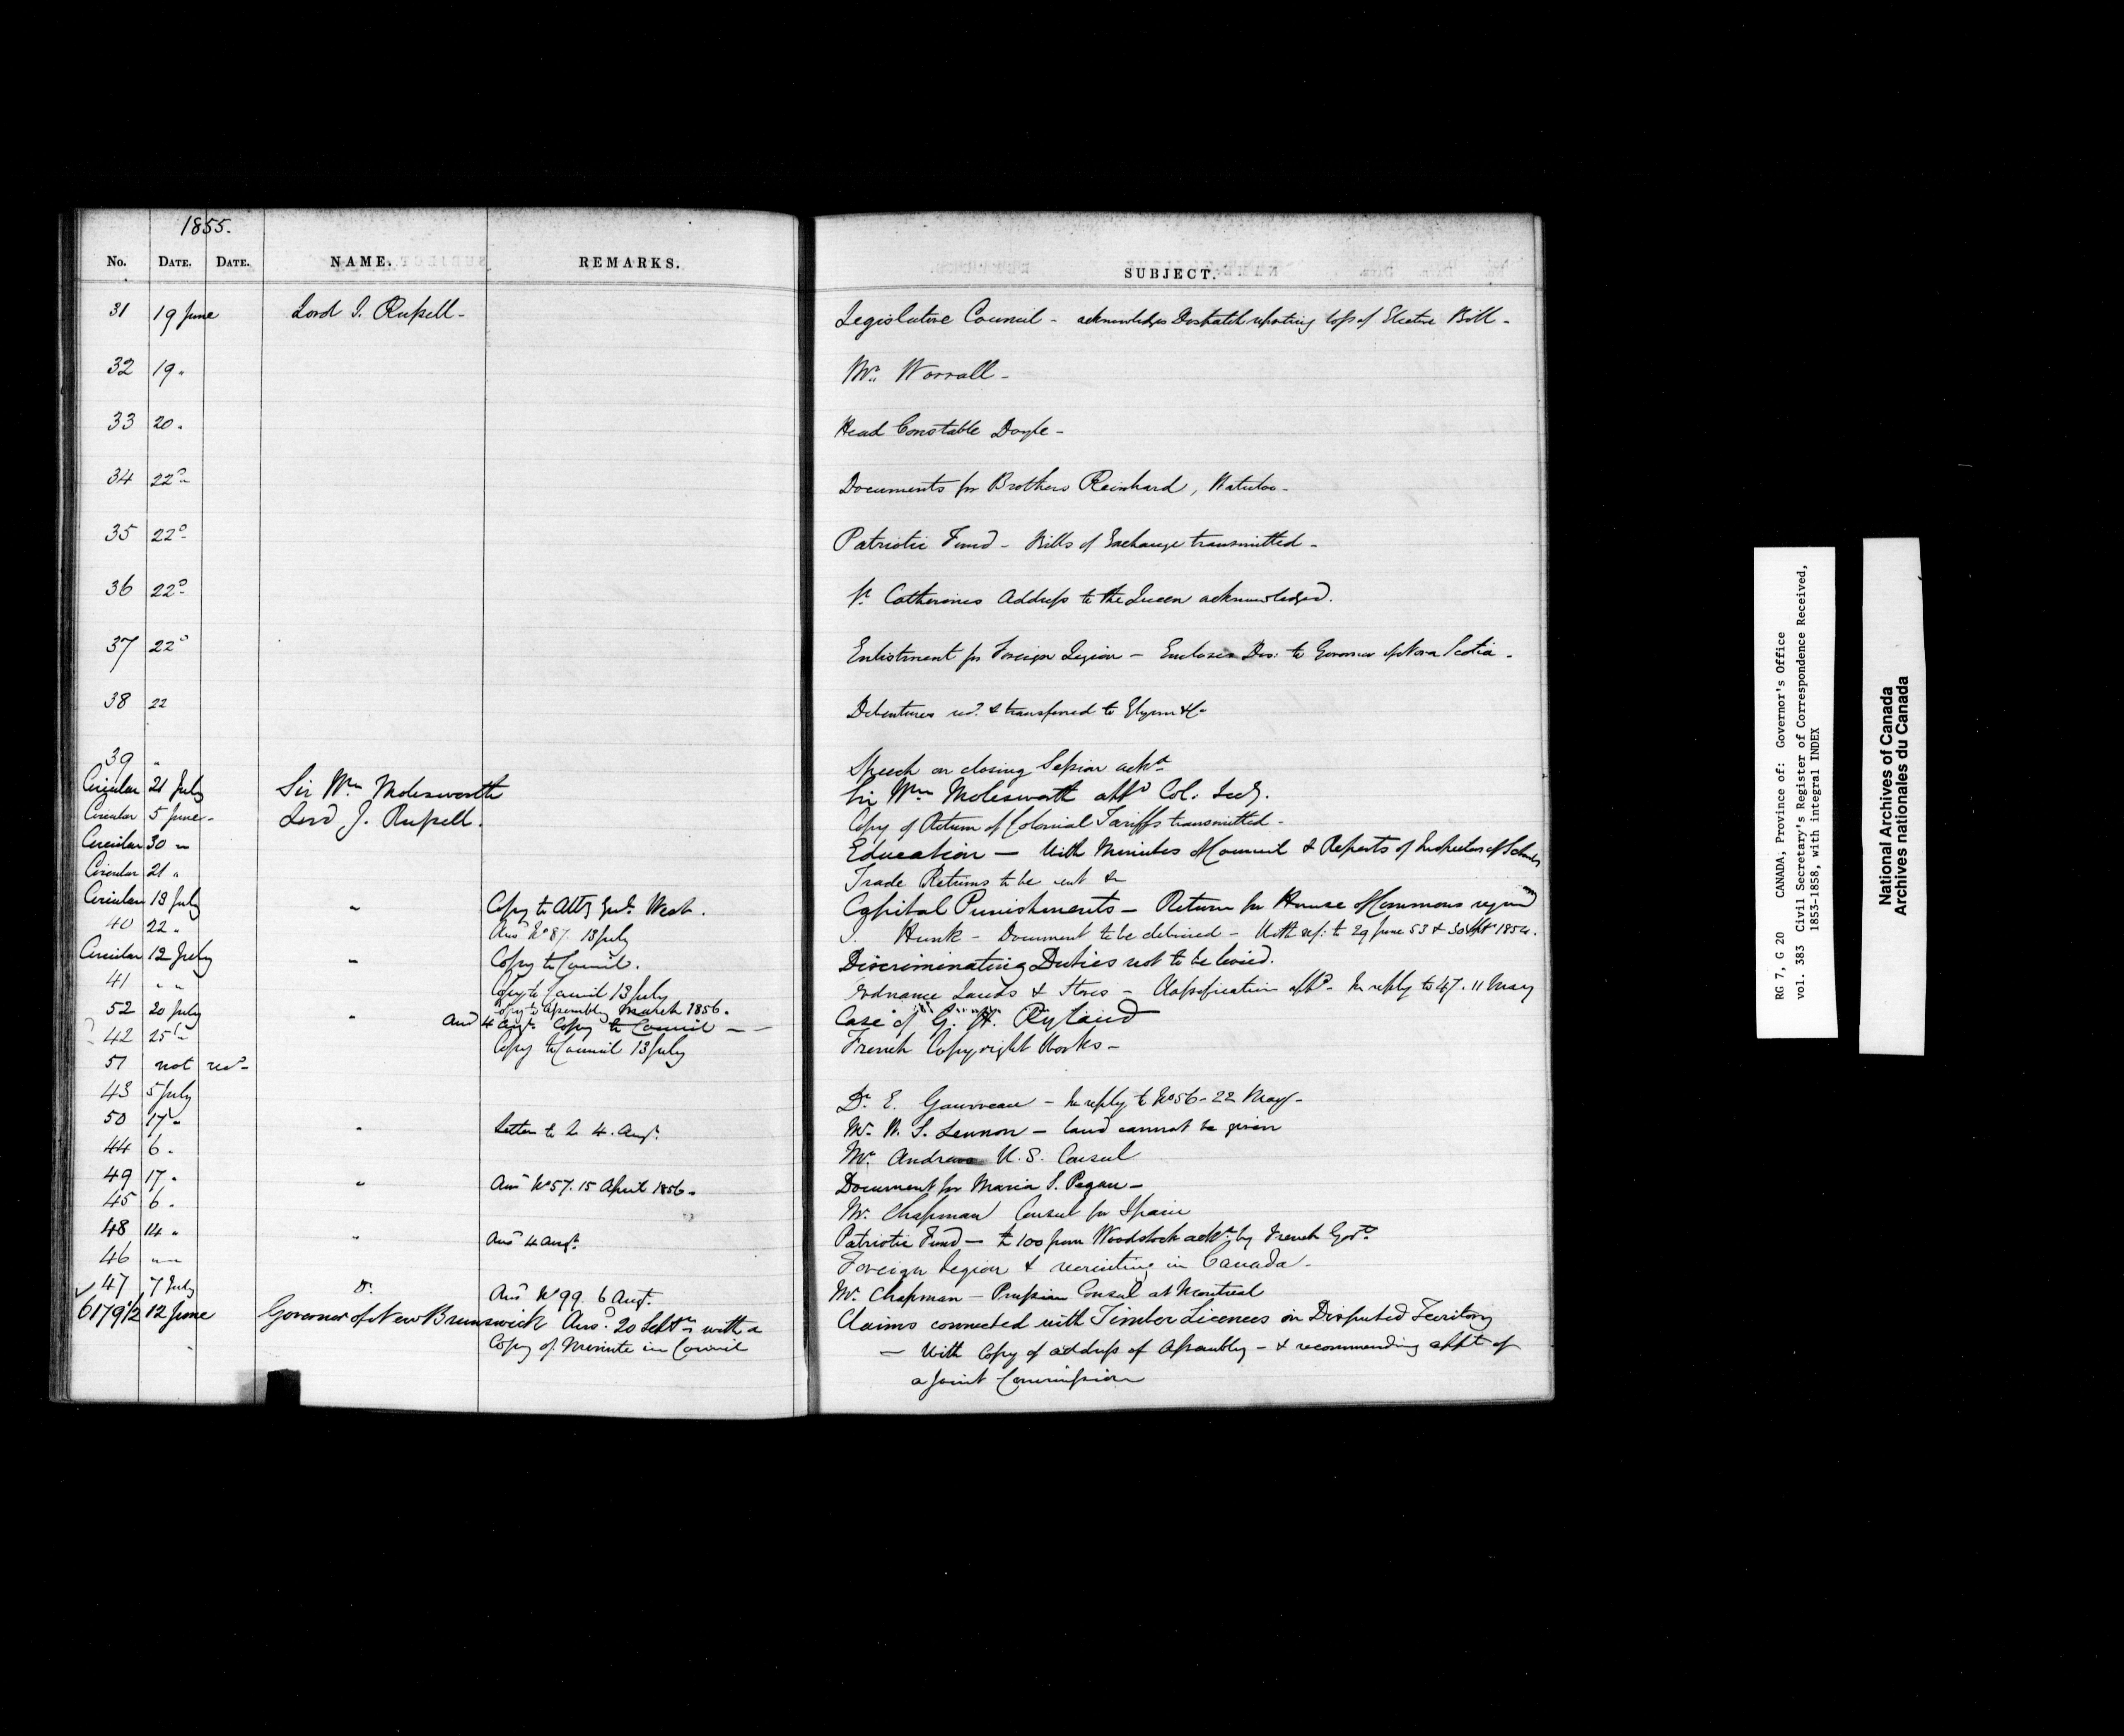 1855.
No. DATE. DATE. NAME. REMARKS. SUBJECT.
31 19 June Lord J. Russell - Legislative Council - acknowledges Despatch reporting loss of Elective Bill -
32 19 " Mr. Worrall -
33 20 " Head Constable Doyle -
34 22 " Documents for Brothers Reinhard, Waterloo -
35 22 " Patriotic Fund - Bills of Exchange transmitted -
36 22 " St Catherines Address to the Queen acknowledged.
37 22 " Enlistment for Foreign Legion - Encloses Des: to Governor of Nova Scotia -
38 22 Debentures recd. & transferred to Glynn & Co
39 " Speech on closing Session ackd
Circular 21 July Sir Wm Molesworth Sir Wm Molesworth appd Col: Secy.
Circular 5 June - Lord J. Russell. Copy of Return of Colonial Tariffs transmitted -
Circular 30 " Education - With Minutes of Council & Reports of Inspectors of Schools
Circular 21 " Trade Returns to be sent &c
Circular 13 July " Copy to Atty Genl. West. Capital Punishments - Return for House of Commons reqred
40 22 " Ansd No 87. 13 July J. Hunk - Document to be delivered - With ref: to 29 June 53 & 30 Sept 1854.
Circular 12 July " Copy to Council. Discriminating Duties not to be levied.
41 " " Copy to Council 13 July Ordnance Lands & Stores - Classification appd - In reply to 47. 11 May
Copy to Assembly March 1856.
52 20 July " Ansd 4 Augt. Copy to Council - - Case of G. H. Ryland
42 25 " Copy to Council 13 July French Copyright Works -
51 not recd -
43 5 July Dr. E. Gauvreau - In reply to No 56 - 22 May -
50 17 " " Letter to L 4. Augt. Mr. W. S. Lennon - land cannot be given
44 6 " Mr. Andrews U.S. Consul
49 17 " " Ansd No 57. 15 April 1856. Document for Maria S. Pegau -
45 6 " Mr. Chapman Consul for Spain
48 14 " " Ansd 4 Augt. Patriotic Fund - £100 from Woodstock ackd. by French Govt.
46 " " Foreign Legion & recruiting in Canada -
47 7 July Do. Ansd No 99. 6 Augt. Mr. Chapman - Prussian Consul at Montreal
6179 1/2 12 June Governor of New Brunswick Ansd. 20 Septr with a Claims connected with Timber Licences on Disputed Territory
Copy of Minute in Council - With Copy of address of Assembly - & recommending appt of
a Joint Commission
RG 7, G 20 CANADA, Province of: Governor's Office
vol. 383 Civil Secretary's Register of Correspondence Received,
1853-1858, with integral INDEX
National Archives of Canada
Archives nationales du Canada